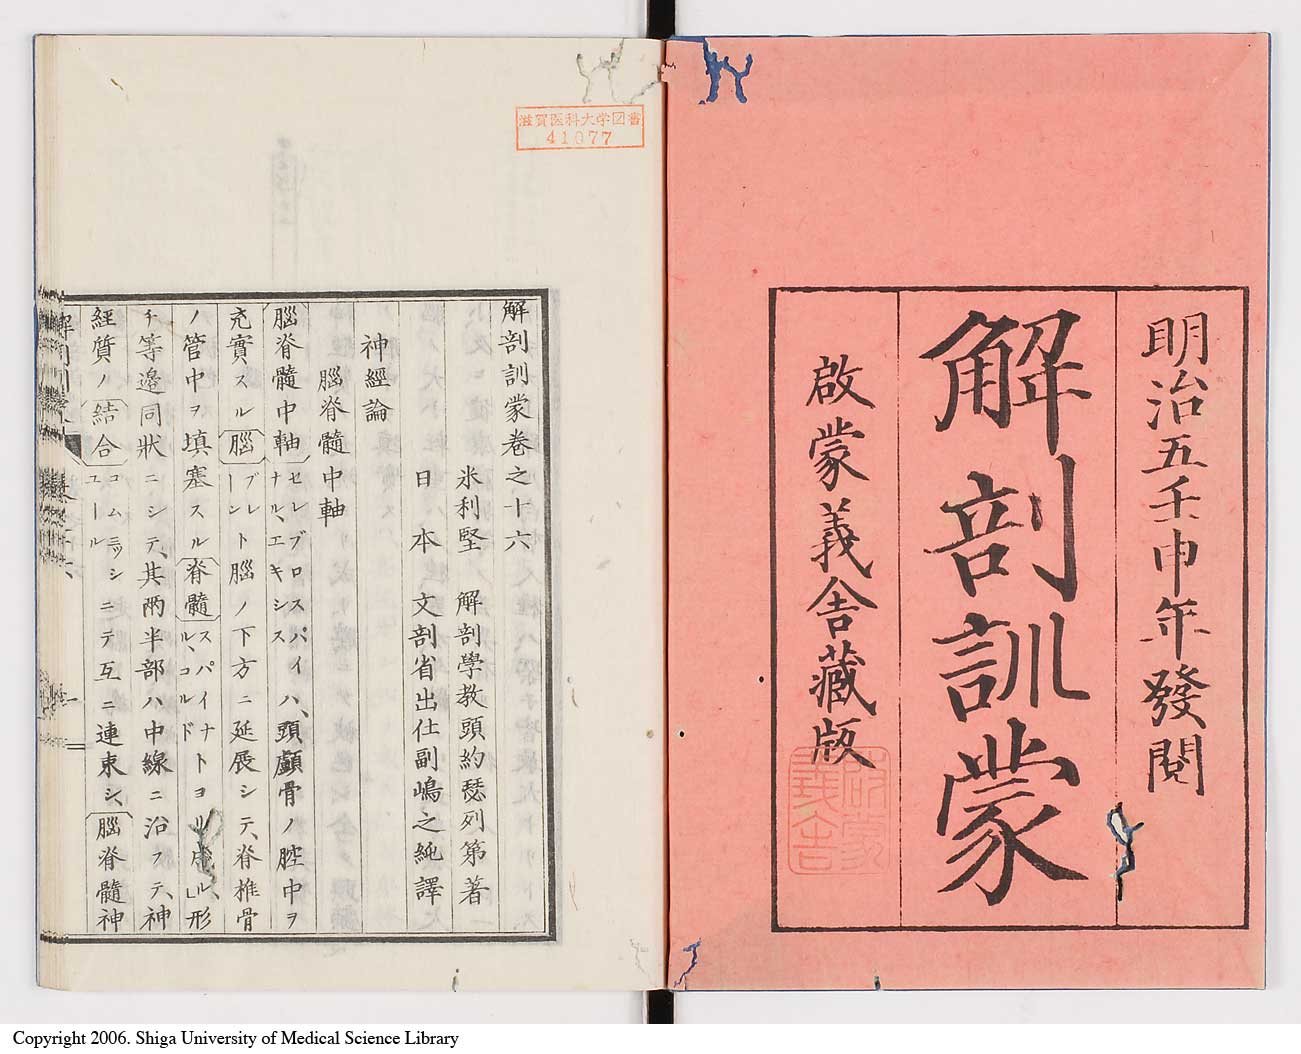 明治五壬申年發閱
解剖訓蒙
啟蒙義舍藏版
啟蒙義舍
滋賀医科大学図書
41077
解剖訓蒙卷之十六
米利堅　解剖學教頭約瑟列第著
日　本　文部省出仕副嶋之純譯
神經論
腦脊髓中軸
腦脊髓中軸セレブロスパイナル、エキシスハ、頭顱骨ノ腔中ヲ
充實スル腦ブレーントト腦ノ下方ニ延展シテ、脊椎骨
ノ管中ヲ填塞スル脊髓スパイナル、コルドトヨリ成ル、」形
チ等邊同狀ニシテ、其兩半部ハ中線ニ沿フテ、神
經質ノ結合コムミッシユールニテ互ニ連束シ、腦脊髓神
Copyright 2006. Shiga University of Medical Science Library